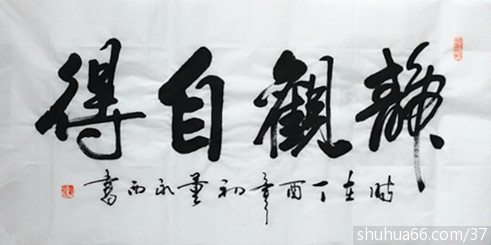 静觀自得
时在丁酉年初永西書
shuhua66.com/37